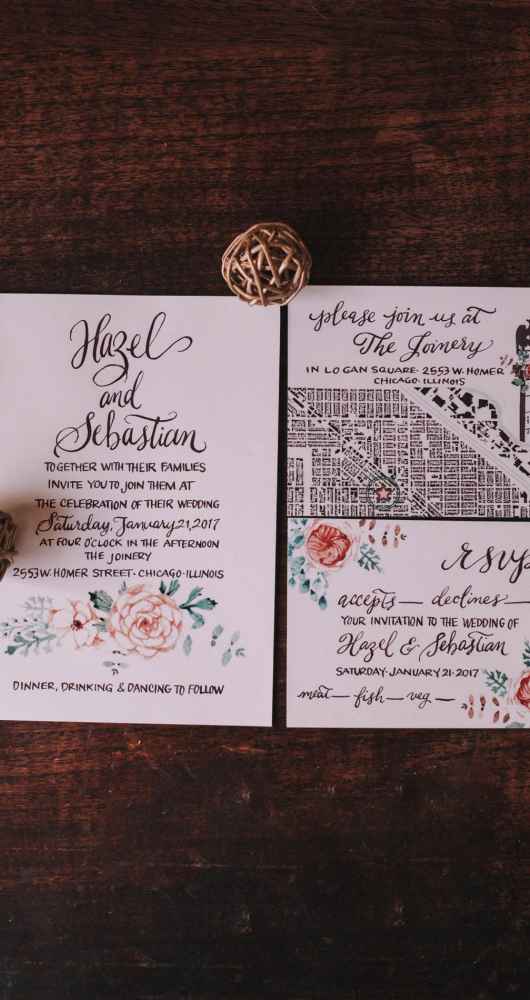 Hazel
and
Sebastian
TOGETHER WITH THEIR FAMILIES
INVITE YOU TO JOIN THEM AT
THE CELEBRATION OF THEIR WEDDING
Saturday, January 21, 2017
AT FOUR O'CLOCK IN THE AFTERNOON
THE JOINERY
2553 W. HOMER STREET · CHICAGO · ILLINOIS
DINNER, DRINKING & DANCING TO FOLLOW
please join us at
The Joinery
IN LOGAN SQUARE · 2553 W. HOMER
CHICAGO · ILLINOIS
rsvp
accepts — declines —
YOUR INVITATION TO THE WEDDING OF
Hazel & Sebastian
SATURDAY · JANUARY 21 · 2017
meat — fish — veg —